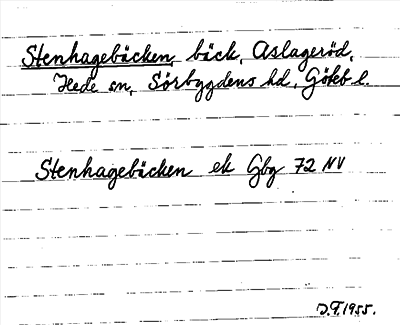 Stenhagebäcken, bäck, Aslageröd,
Hede sn, Sörbygdens hd., Gökb l.
Stenhagebäcken ek Gbg 72 NV
D.F. 1955.